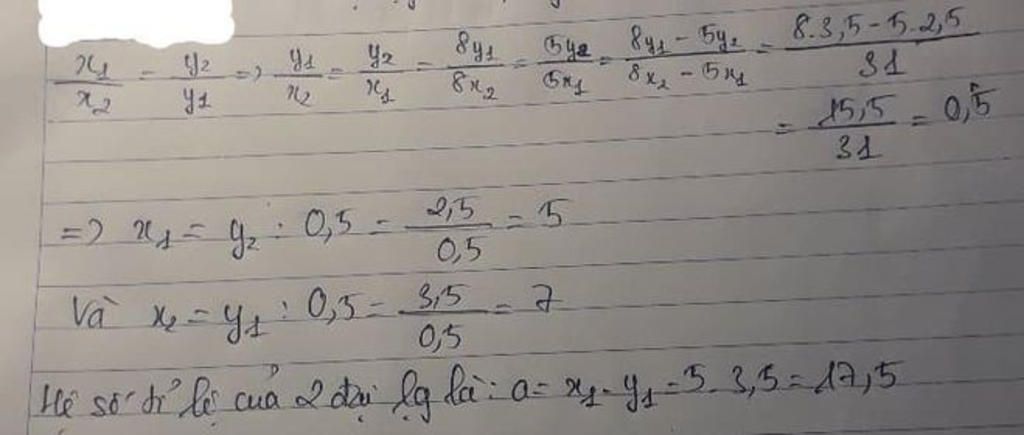 x₁/x₂ = y₂/y₁ => y₁/x₂ = y₂/x₁ = 8y₁/8x₂ = 5y₂/5x₁ = (8y₁ - 5y₂)/(8x₂ - 5x₁) = (8.3,5 - 5.2,5)/31
= 15,5/31 = 0,5
=> x₁ = y₂ : 0,5 = 2,5/0,5 = 5
Và x₂ = y₁ : 0,5 = 3,5/0,5 = 7
Hệ số tỉ lệ của 2 đại lg là: a = x₁ . y₁ = 5 . 3,5 = 17,5